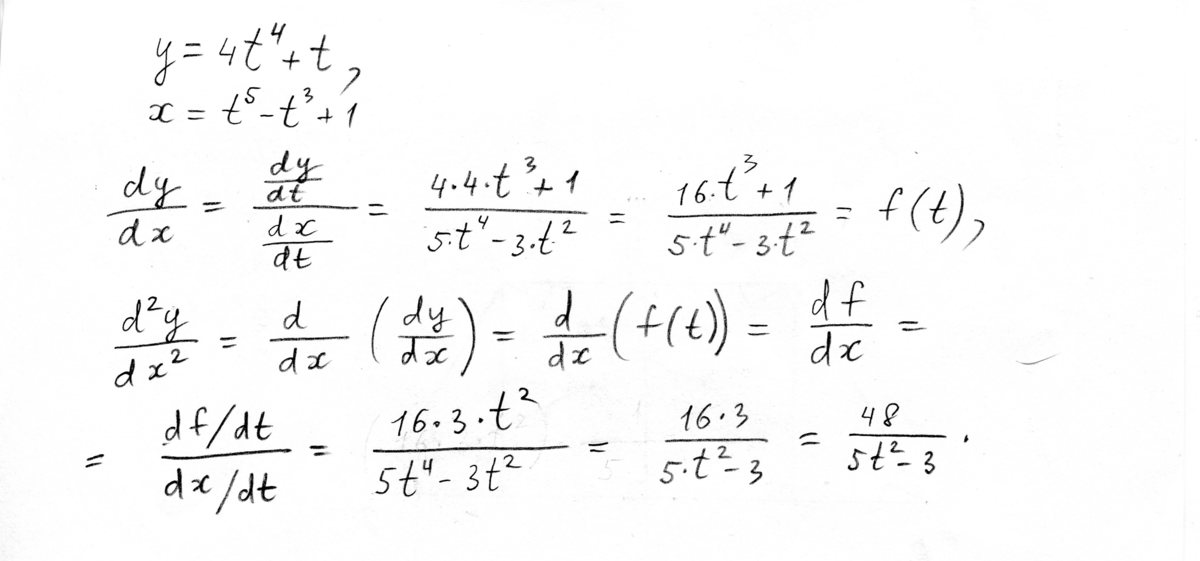 y = 4t⁴ + t,
x = t⁵ - t³ + 1
dy/dx = (dy/dt)/(dx/dt) = (4·4·t³ + 1)/(5·t⁴ - 3·t²) = (16·t³ + 1)/(5·t⁴ - 3·t²) = f(t),
d²y/dx² = d/dx (dy/dx) = d/dx (f(t)) = df/dx =
= (df/dt)/(dx/dt) = (16·3·t²)/(5t⁴ - 3t²) = (16·3)/(5·t² - 3) = 48/(5t² - 3).